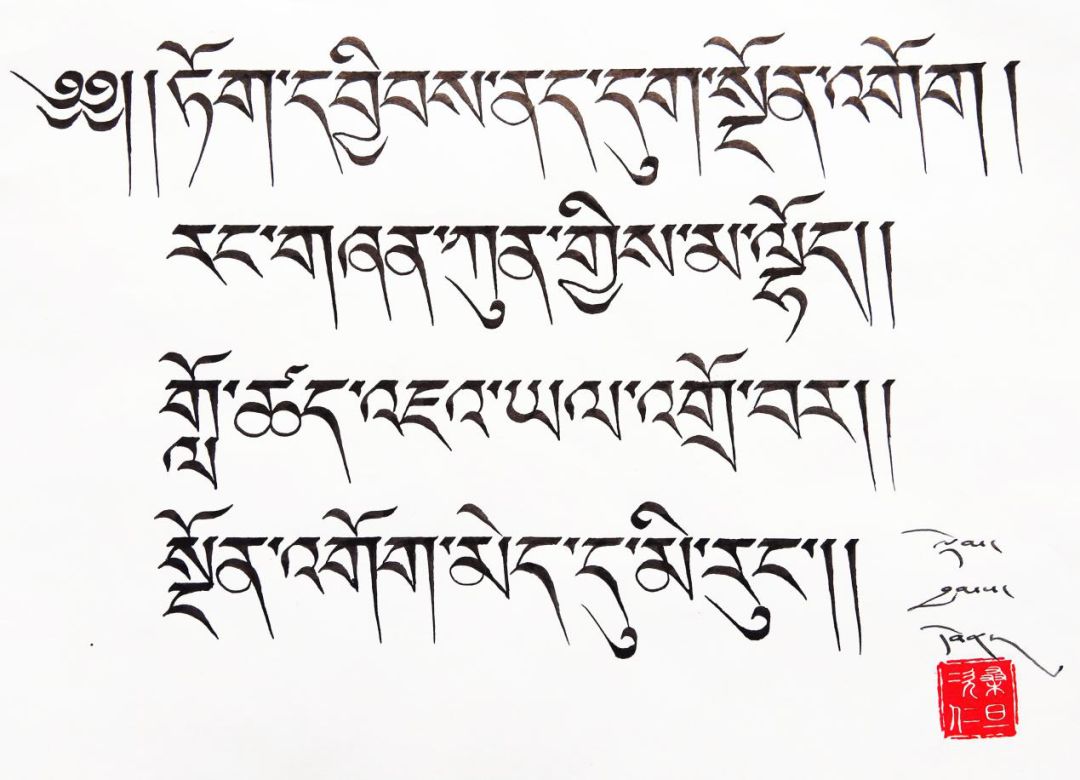 ༄༅། །ཏོག་དབྱིབས་ནད་དུག་སྔོན་འགོག །
རང་གཞན་ཀུན་གྱིས་མ་ལྷོད། །
གློ་ཚད་འཇའ་ཡལ་འགྲོ་བར། །
སྔོན་འགོག་མེད་དུ་མི་རུང་། །
桑旦
次仁